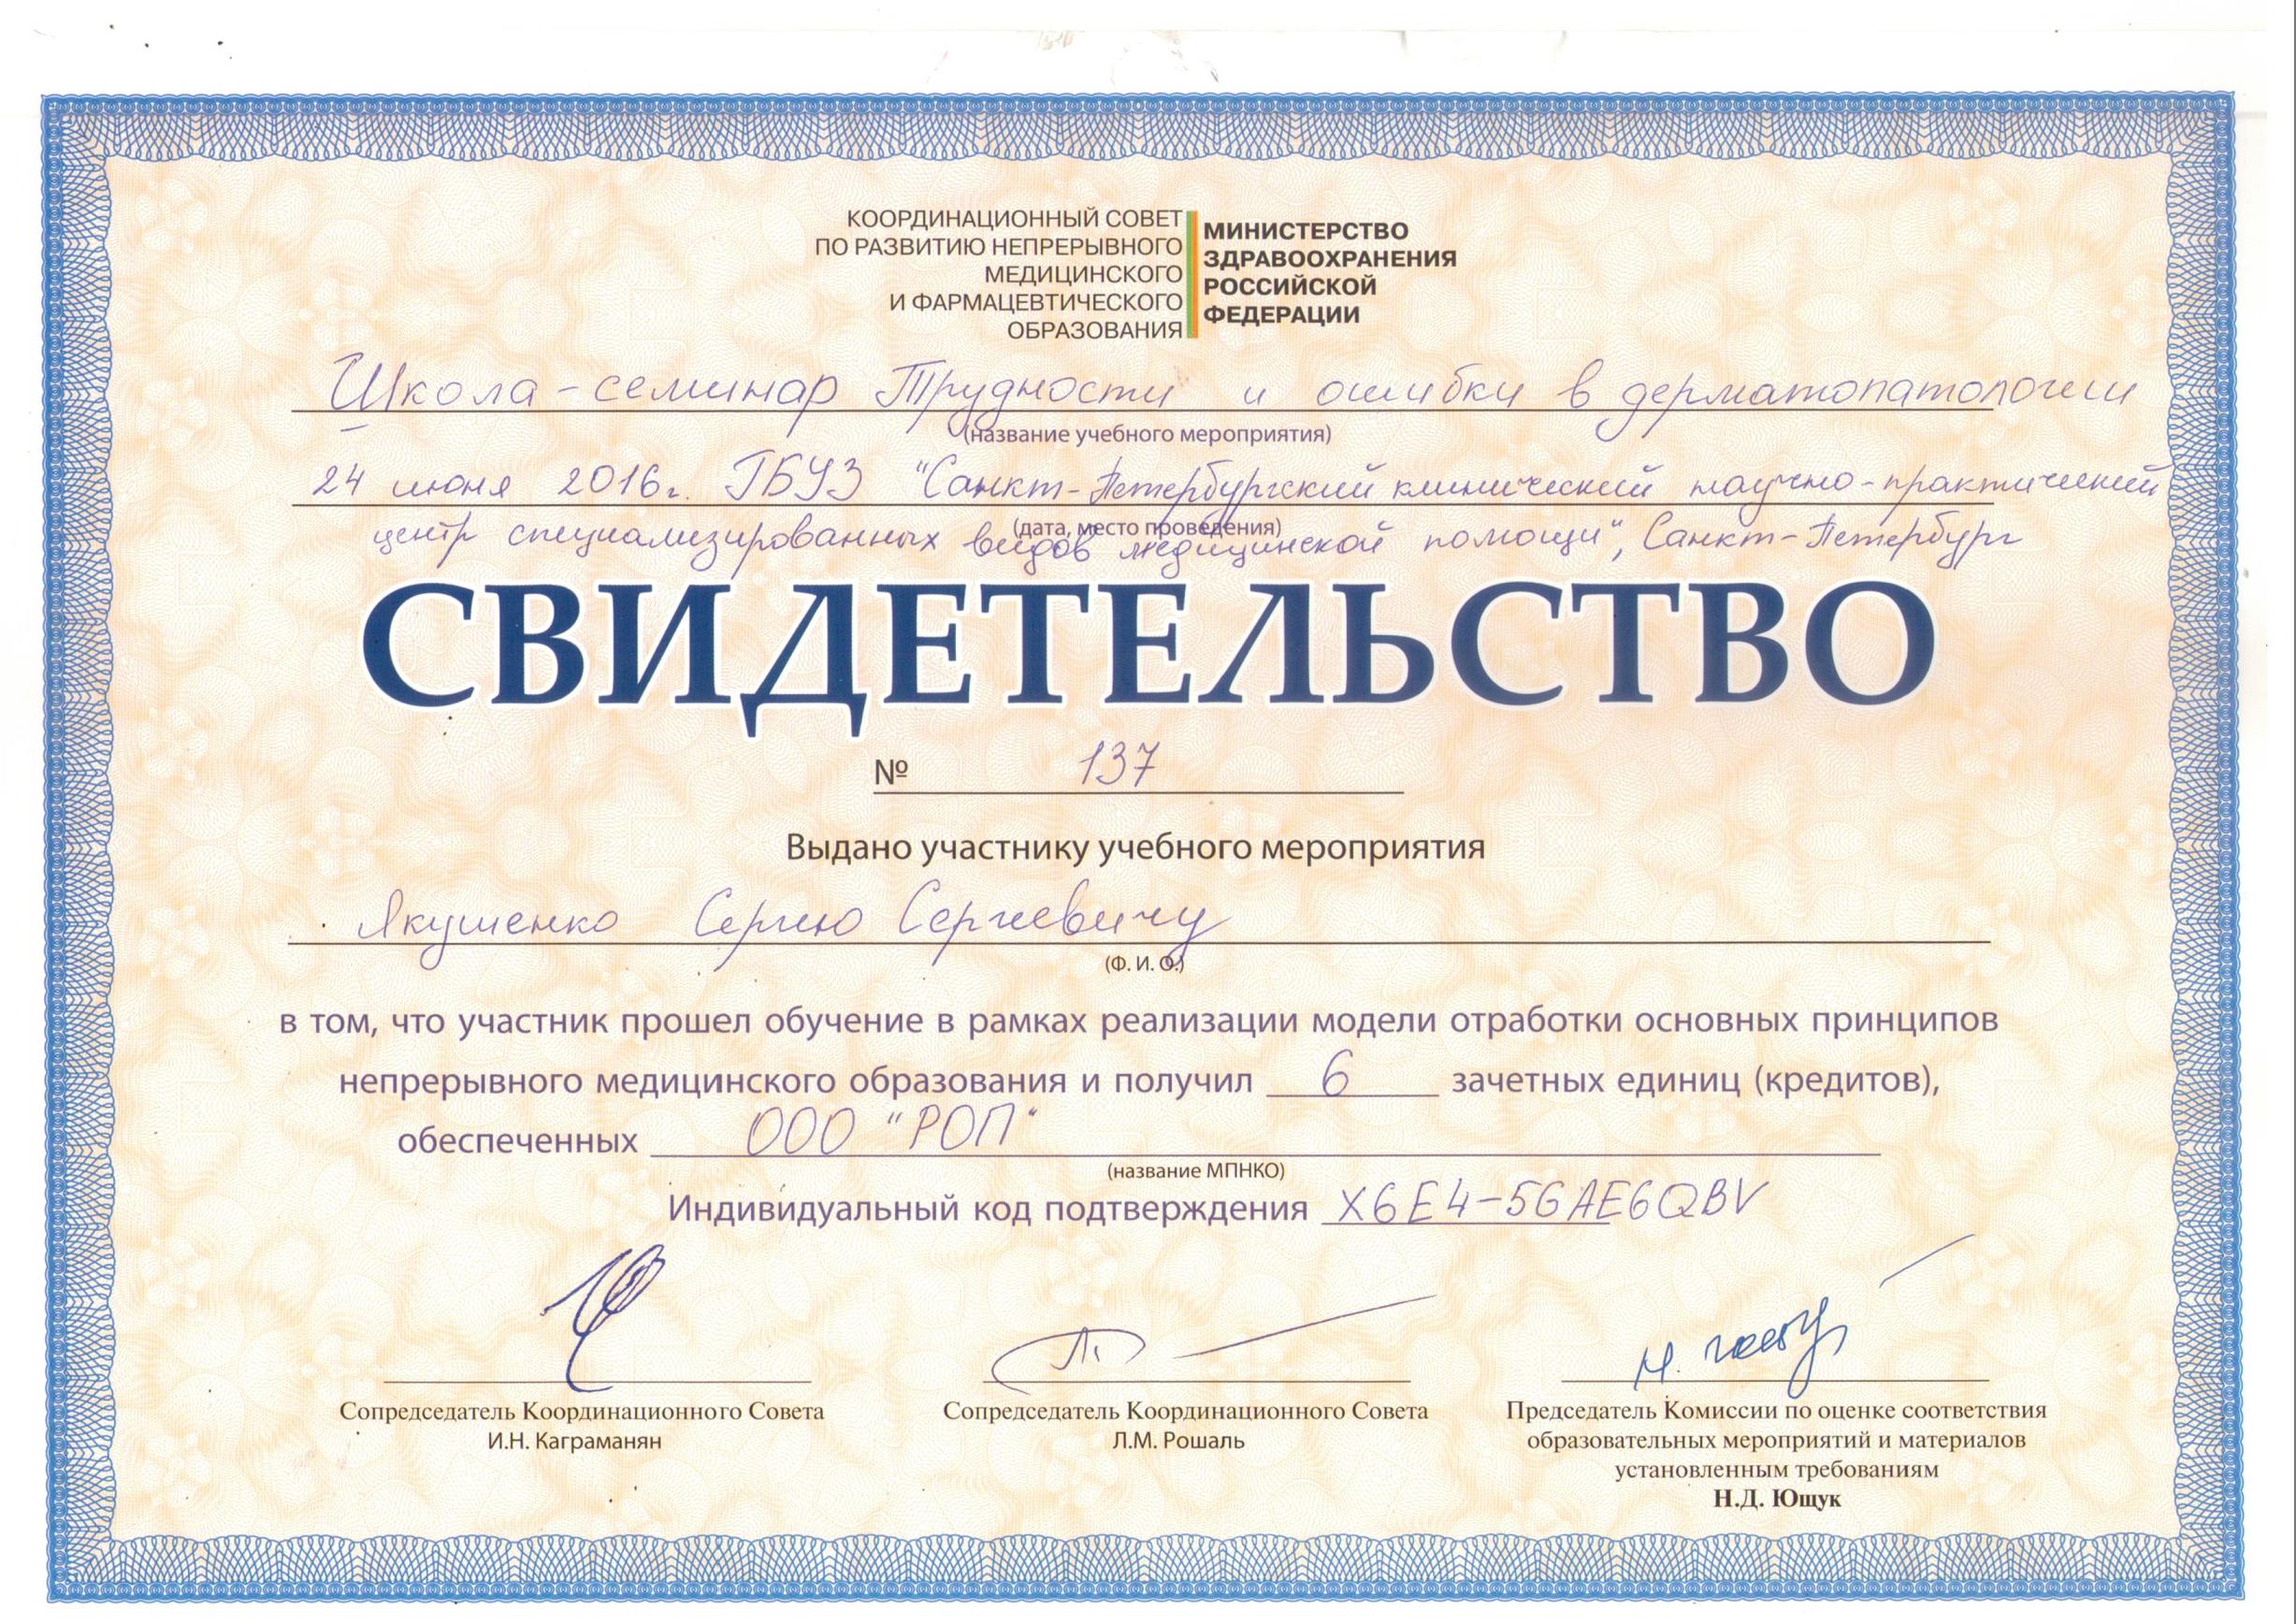 КООРДИНАЦИОННЫЙ СОВЕТ
ПО РАЗВИТИЮ НЕПРЕРЫВНОГО
МЕДИЦИНСКОГО
И ФАРМАЦЕВТИЧЕСКОГО
ОБРАЗОВАНИЯ
МИНИСТЕРСТВО
ЗДРАВООХРАНЕНИЯ
РОССИЙСКОЙ
ФЕДЕРАЦИИ
Школа-семинар Трудности и ошибки в дерматопатологии
(название учебного мероприятия)
24 июня 2016г. ГБУЗ "Санкт-Петербургский клинический научно-практический
(дата, место проведения)
центр специализированных видов медицинской помощи", Санкт-Петербург
СВИДЕТЕЛЬСТВО
№ 137
Выдано участнику учебного мероприятия
Якушенко Сергею Сергеевичу
(Ф. И. О.)
в том, что участник прошел обучение в рамках реализации модели отработки основных принципов
непрерывного медицинского образования и получил 6 зачетных единиц (кредитов),
обеспеченных ООО "РОП"
(название МПНКО)
Индивидуальный код подтверждения X6E4-5GAE6QBV
Сопредседатель Координационного Совета
И.Н. Каграманян
Сопредседатель Координационного Совета
Л.М. Рошаль
Председатель Комиссии по оценке соответствия
образовательных мероприятий и материалов
установленным требованиям
Н.Д. Ющук